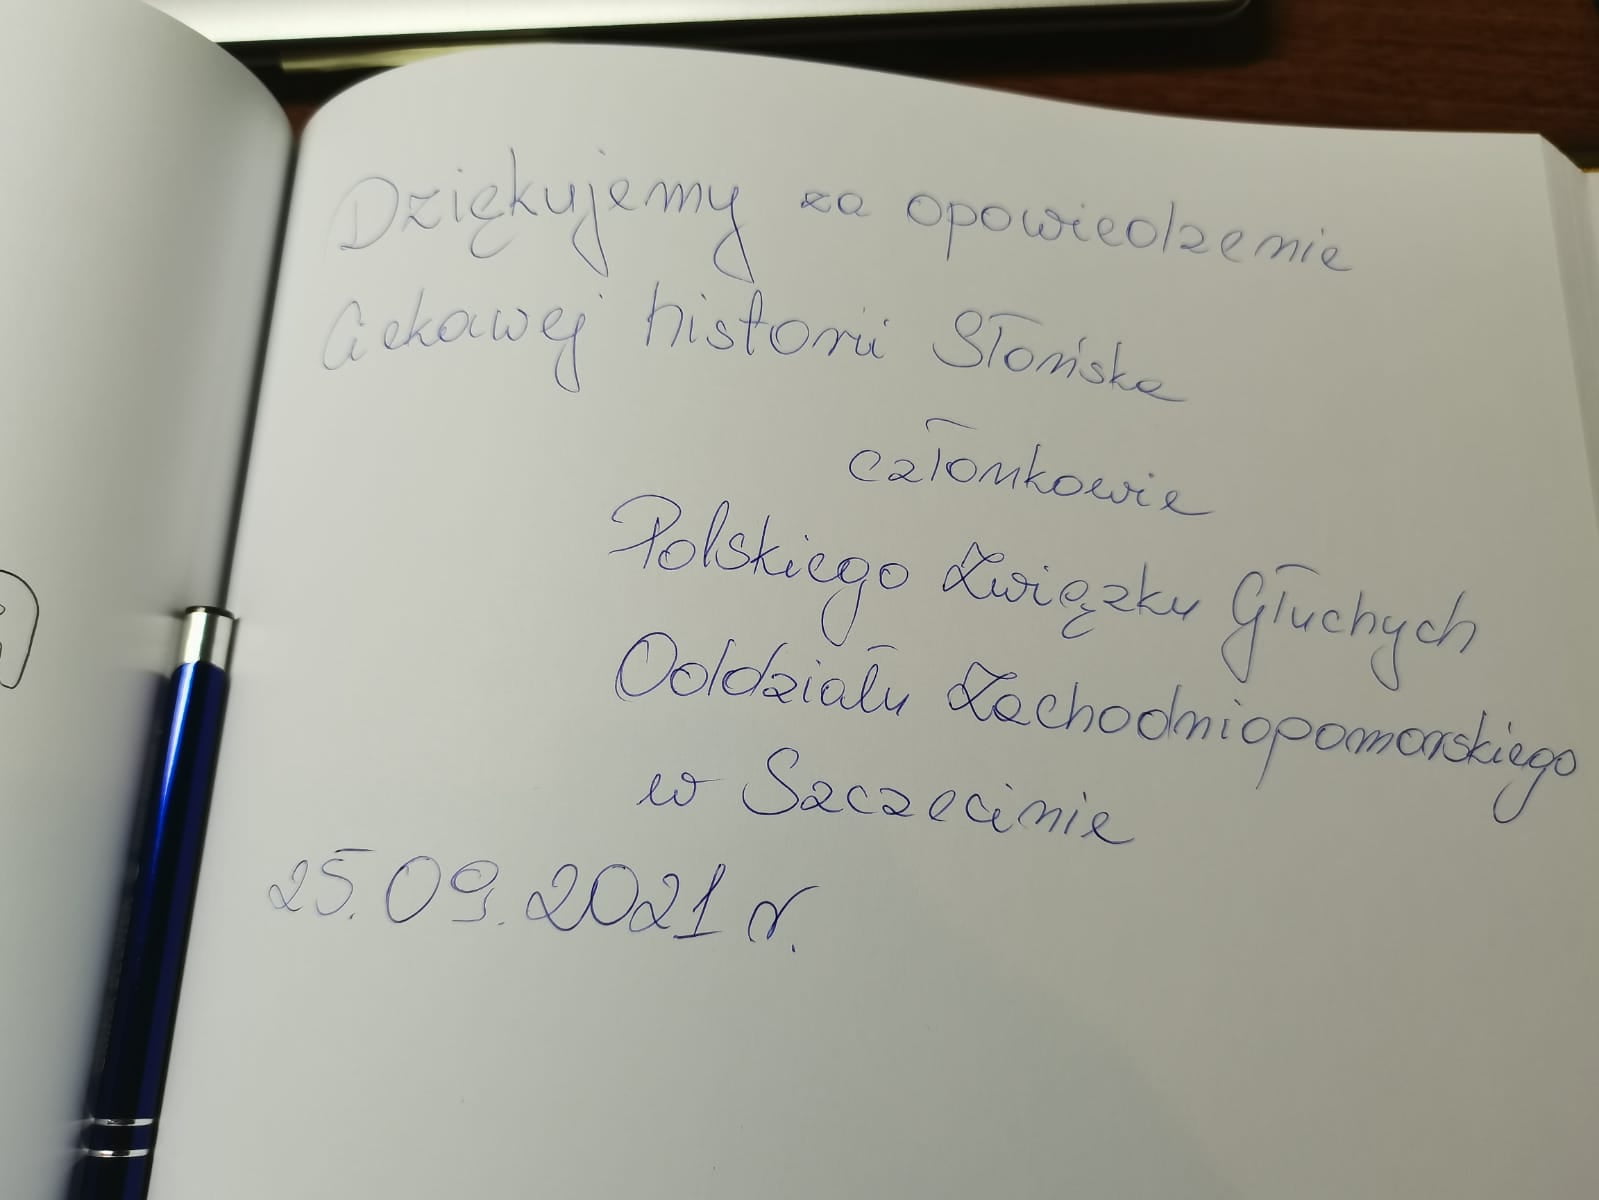 Dziękujemy za opowiedzenie
Ciekawej historii Słońska
członkowie
Polskiego Związku Głuchych
Oddziału Zachodniopomorskiego
w Szczecinie
25.09.2021 r.